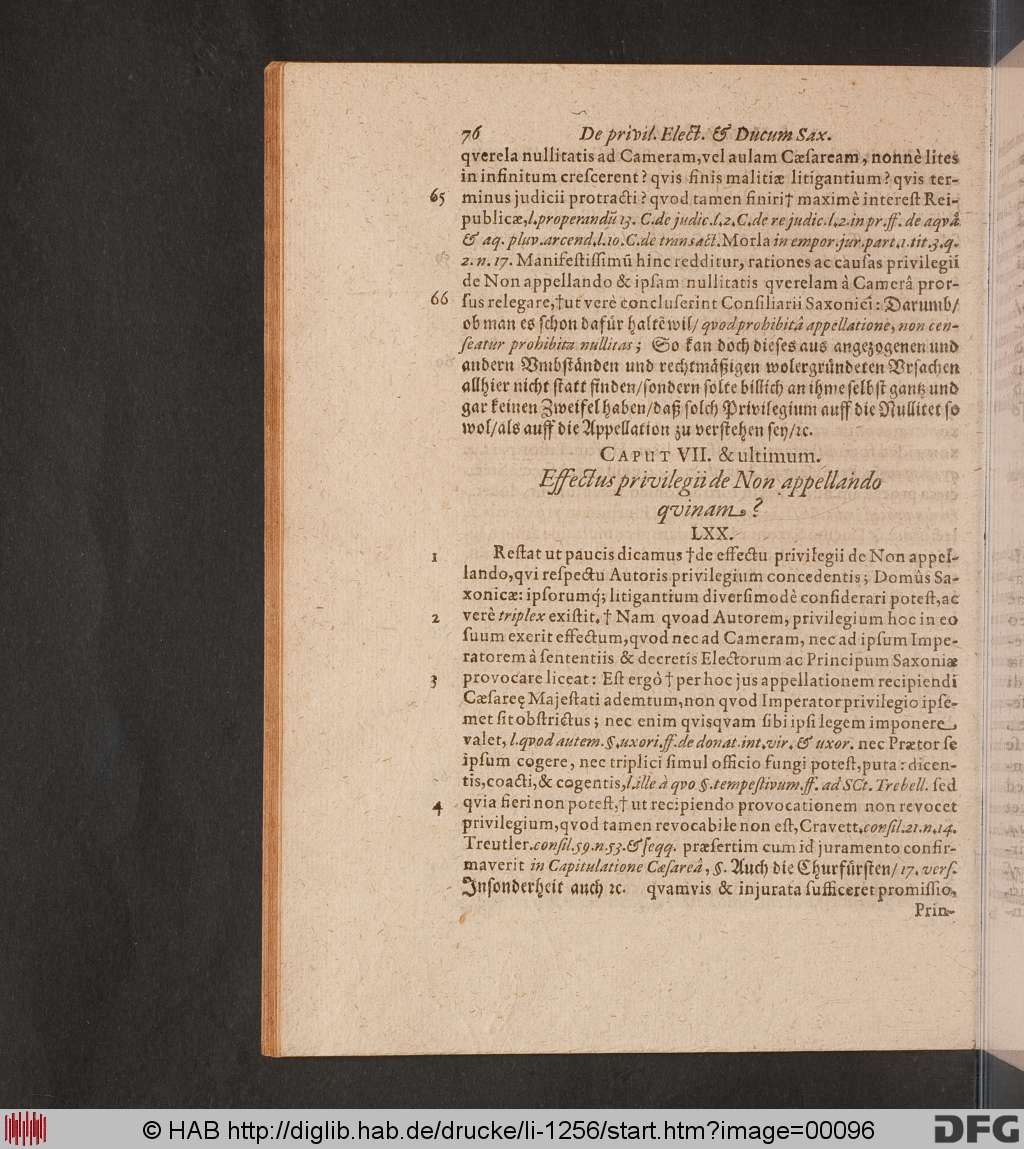 76 De privil. Elect. & Ducum Sax.
qverela nullitatis ad Cameram, vel aulam Cæſaream, nonnè lites
in infinitum creſcerent? qvis finis malitiæ litigantium? qvis ter-
65 minus judicii protracti? qvod tamen finiri † maximè intereſt Rei-
publicæ, l. properandū 13. C. de judic. l. 2. C. de re judic. l. 2. in pr. ff. de aqvâ
& aq. pluv. arcend. l. 10. C. de transact. Morla in empor. jur. part. 1. tit. 3. q.
2. n. 17. Manifeſtiſſimū hinc redditur, rationes ac cauſas privilegii
de Non appellando & ipſam nullitatis qverelam à Camerâ pror-
66 ſus relegare, † ut verè concluſerint Conſiliarii Saxonici: Darumb/
ob man es ſchon dafür haltē wil/ qvod prohibitâ appellatione, non cen-
ſeatur prohibita nullitas; So kan doch dieſes aus angezogenen und
andern Vmbſtänden und rechtmäßigen wolergründeten Vrſachen
allhier nicht ſtatt finden/ ſondern ſolte billich an ihme ſelbſt gantz und
gar keinen Zweifel haben/ daß ſolch Privilegium auff die Nullitet ſo
wol/ als auff die Appellation zu verſtehen ſey/ ꝛc.
CAPUT VII. & ultimum.
Effectus privilegii de Non appellando
qvinam?
LXX.
1 Reſtat ut paucis dicamus † de effectu privilegii de Non appel-
lando, qvi reſpectu Autoris privilegium concedentis; Domûs Sa-
xonicæ: ipſorumq́; litigantium diverſimodè conſiderari poteſt, ac
2 verè triplex exiſtit. † Nam qvoad Autorem, privilegium hoc in eo
ſuum exerit effectum, qvod nec ad Cameram, nec ad ipſum Impe-
ratorem à ſententiis & decretis Electorum ac Principum Saxoniæ
3 provocare liceat: Eſt ergò † per hoc jus appellationem recipiendi
Cæſareę Majeſtati ademtum, non qvod Imperator privilegio ipſe-
met ſit obſtrictus; nec enim qviſqvam ſibi ipſi legem imponere
valet, l. qvod autem. §. uxori. ff. de donat. int. vir. & uxor. nec Prætor ſe
ipſum cogere, nec triplici ſimul officio fungi poteſt, puta: dicen-
tis, coacti, & cogentis, l. ille à qvo §. tempeſtivum. ff. ad SCt. Trebell. ſed
4 qvia fieri non poteſt, † ut recipiendo provocationem non revocet
privilegium, qvod tamen revocabile non eſt, Cravett. conſil. 21. n. 14.
Treutler. conſil. 59. n. 53. & ſeqq. præſertim cum id juramento confir-
maverit in Capitulatione Cæſareâ, §. Auch die Churfürſten/ 17. verſ.
Inſonderheit auch ꝛc. qvamvis & injurata ſufficeret promiſſio,
Prin-
© HAB http://diglib.hab.de/drucke/li-1256/start.htm?image=00096
DFG